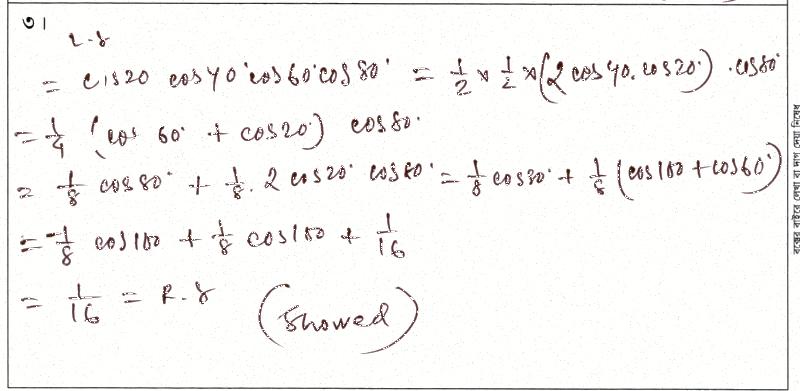 ৩।
L.S
= cos20 cos40° cos60° cos80° = 1/2 × 1/2 × (2 cos40. cos20°) . cos80°
= 1/4 (cos 60° + cos20°) cos80°
= 1/8 cos80° + 1/8 . 2 cos20° cos80° = 1/8 cos80° + 1/8 (cos100 + cos60°)
= -1/8 cos100 + 1/8 cos100 + 1/16
= 1/16 = R.S (Showed)
বক্সের বাইরে লেখা বা দাগ দেয়া নিষেধ